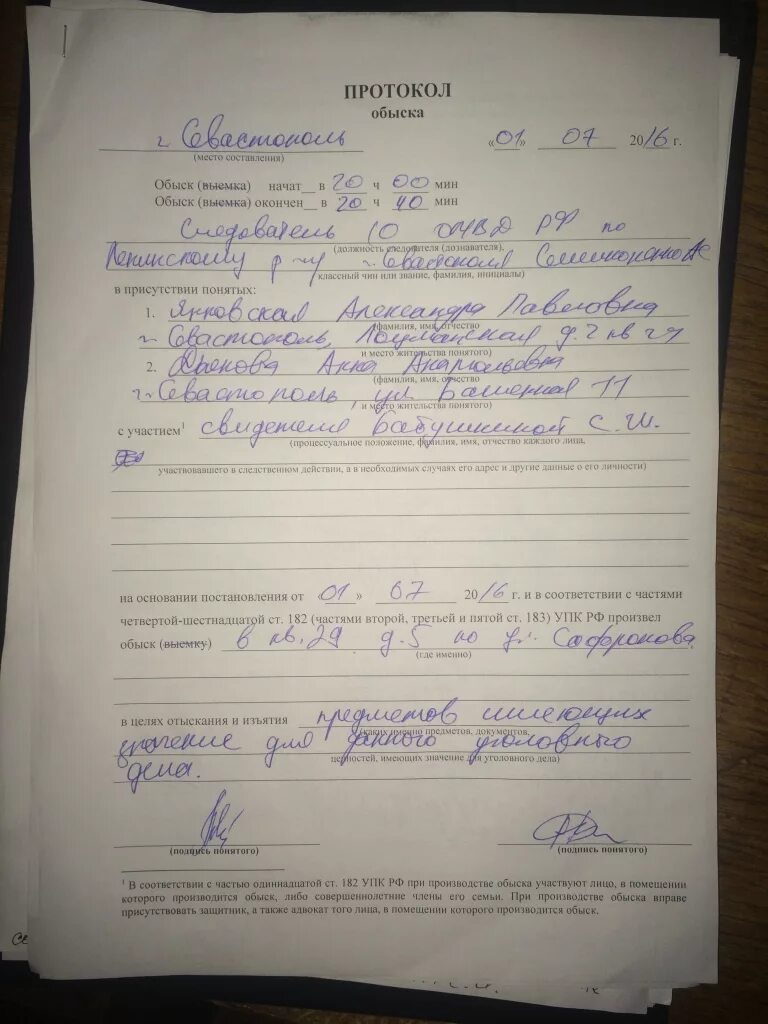 ПРОТОКОЛ
обыска
г. Севастополь «01» 07 2016 г.
(место составления)
Обыск (выемка) начат в 20 ч 00 мин
Обыск (выемка) окончен в 20 ч 40 мин
Следователь ОМВД РФ по
(должность следователя (дознавателя),
Ленинскому р-ну г. Севастополя
классный чин или звание, фамилия, инициалы)
в присутствии понятых:
1. Янковская Александра Павловна
(фамилия, имя, отчество
г. Севастополь, д. 2 кв
и место жительства понятого)
2. Анна Анатольевна
(фамилия, имя, отчество
г. Севастополь, ул 11
и место жительства понятого)
с участием¹ свидетеля Бабушкиной С.Ш.
(процессуальное положение, фамилия, имя, отчество каждого лица,
участвовавшего в следственном действии, а в необходимых случаях его адрес и другие данные о его личности)
на основании постановления от «01» 07 2016 г. и в соответствии с частями
четвертой-шестнадцатой ст. 182 (частями второй, третьей и пятой ст. 183) УПК РФ произвел
обыск (выемку) в кв. 29 д. 5 по ул. Сафронова
(где именно)
в целях отыскания и изъятия предметов имеющих
(каких именно предметов, документов,
значение для данного уголовного
ценностей, имеющих значение для уголовного дела)
дела.
(подпись понятого) (подпись понятого)
¹ В соответствии с частью одиннадцатой ст. 182 УПК РФ при производстве обыска участвуют лицо, в помещении
которого производится обыск, либо совершеннолетние члены его семьи. При производстве обыска вправе
присутствовать защитник, а также адвокат того лица, в помещении которого производится обыск.